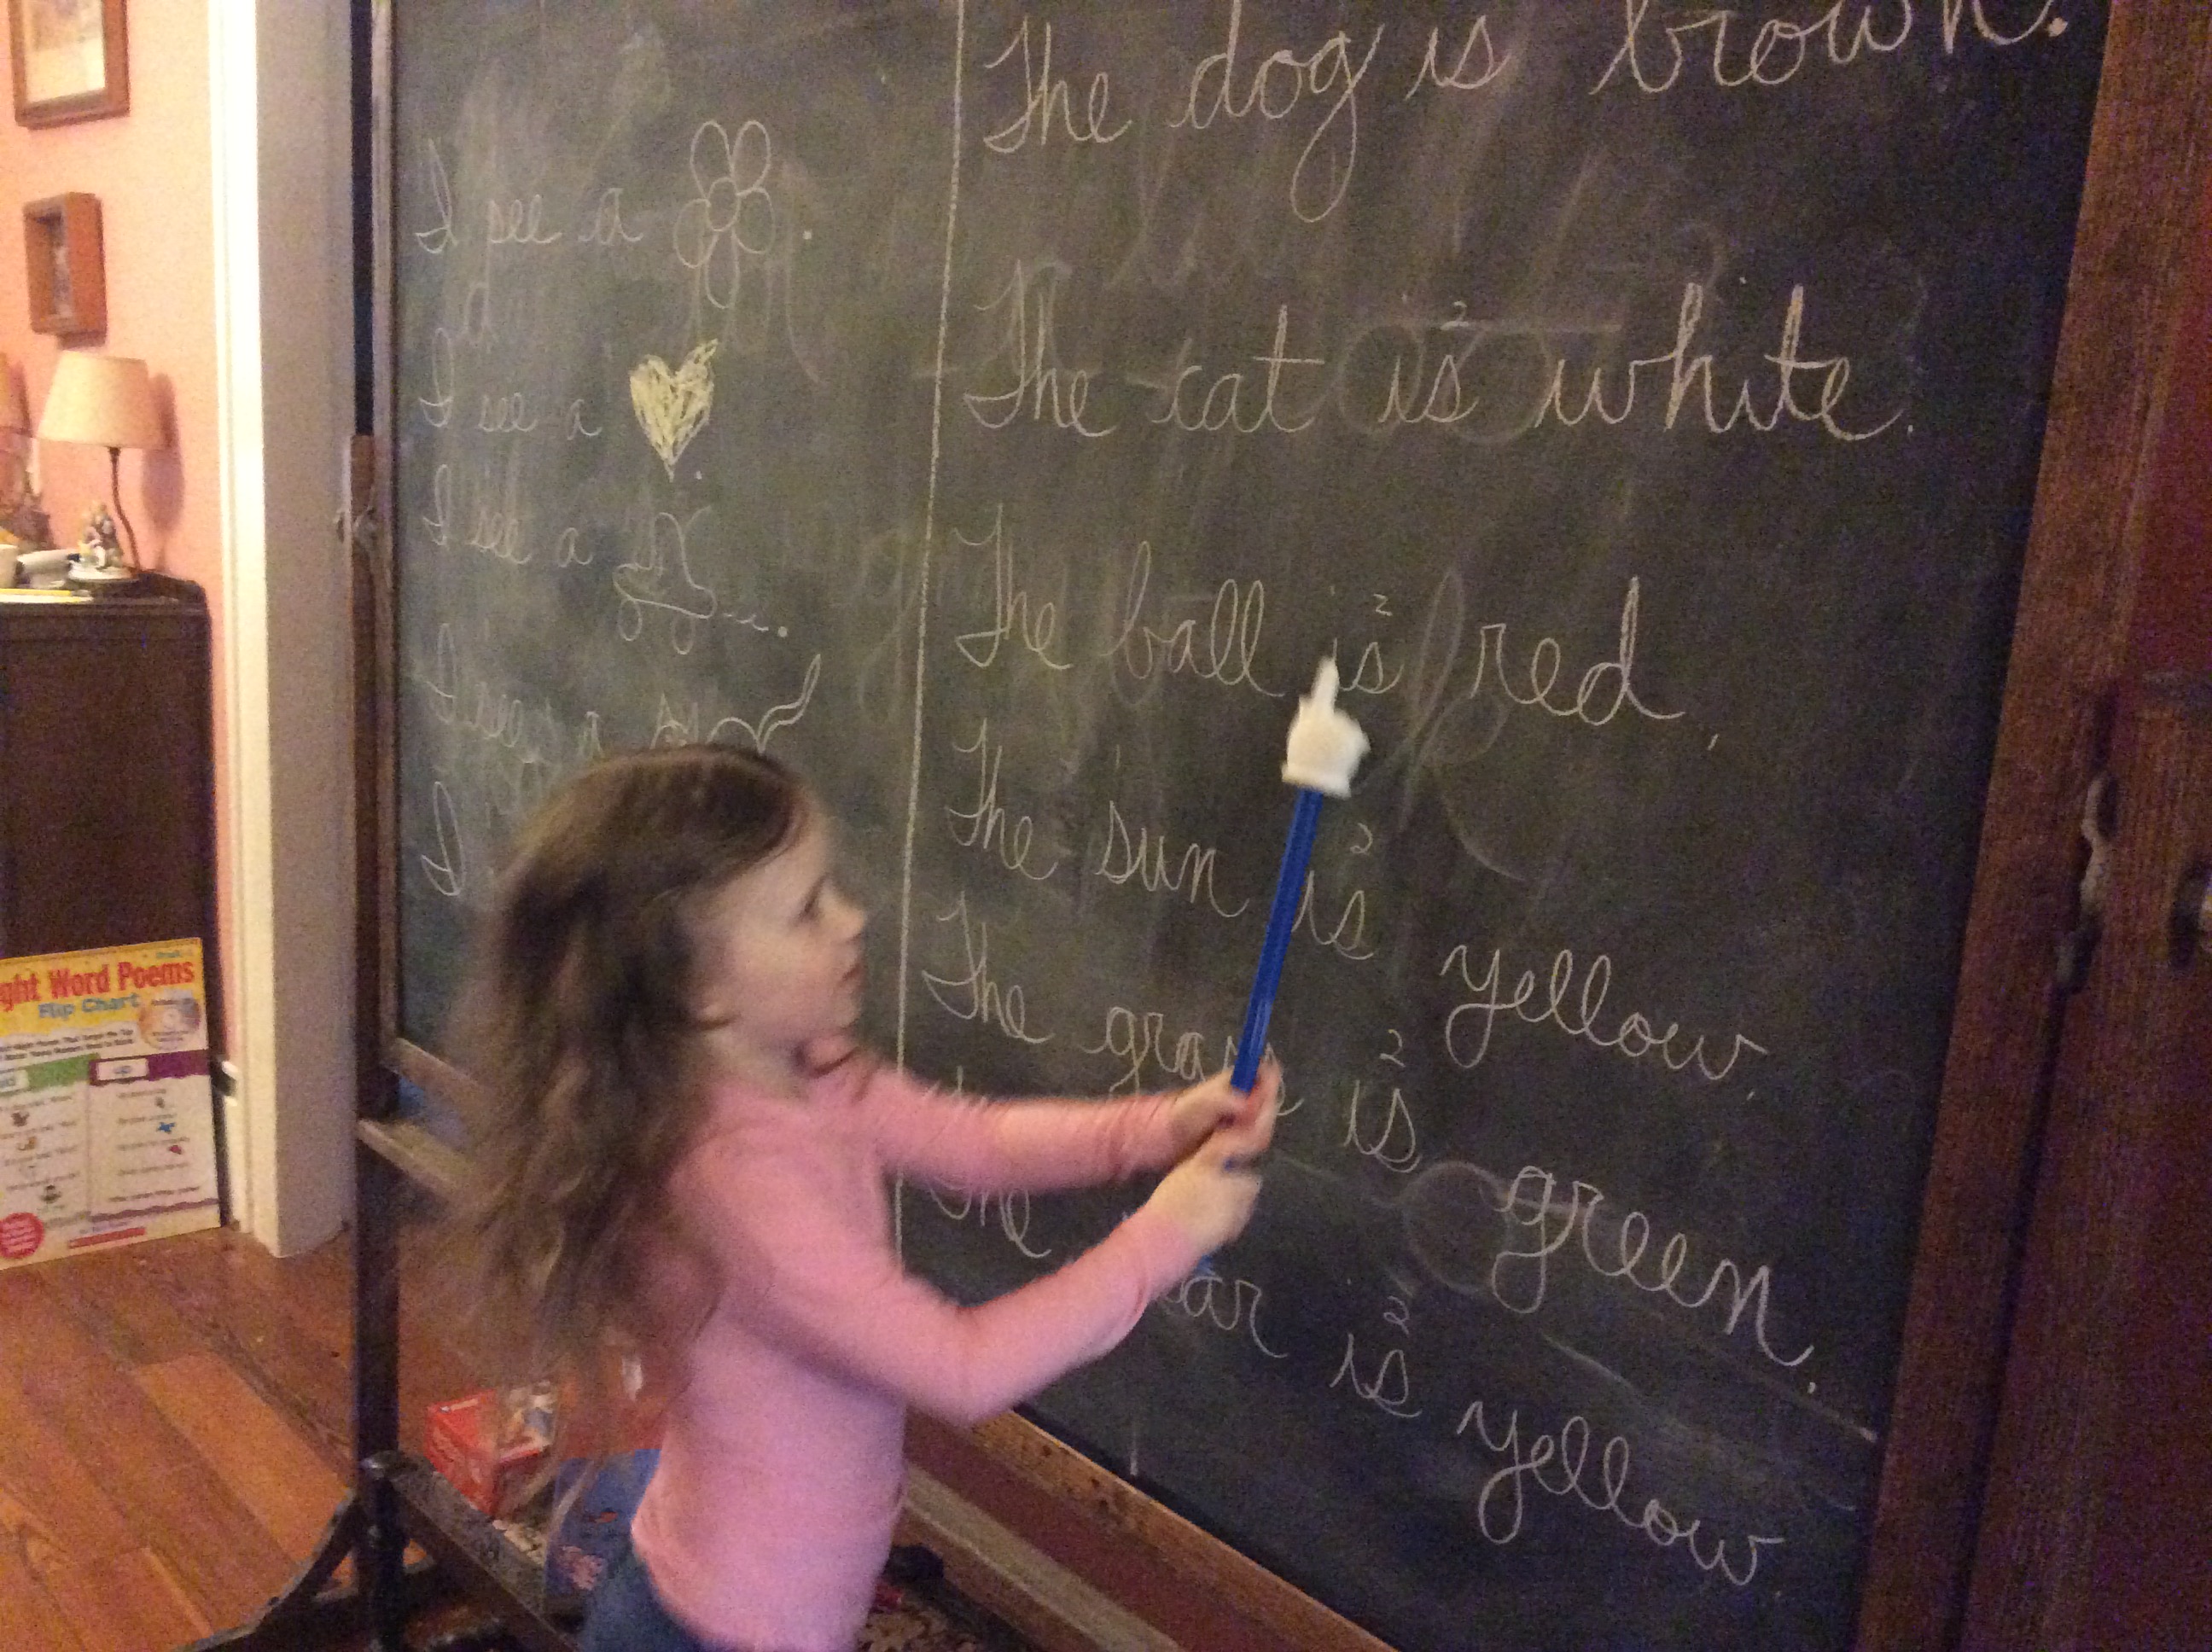 I see a
I see a
I see a
I see a
I
The dog is brown.
The cat is white.
2
The ball is red.
2
The sun is yellow.
2
The is green.
2
The is yellow.
2
ght Word Poems
Flip Chart